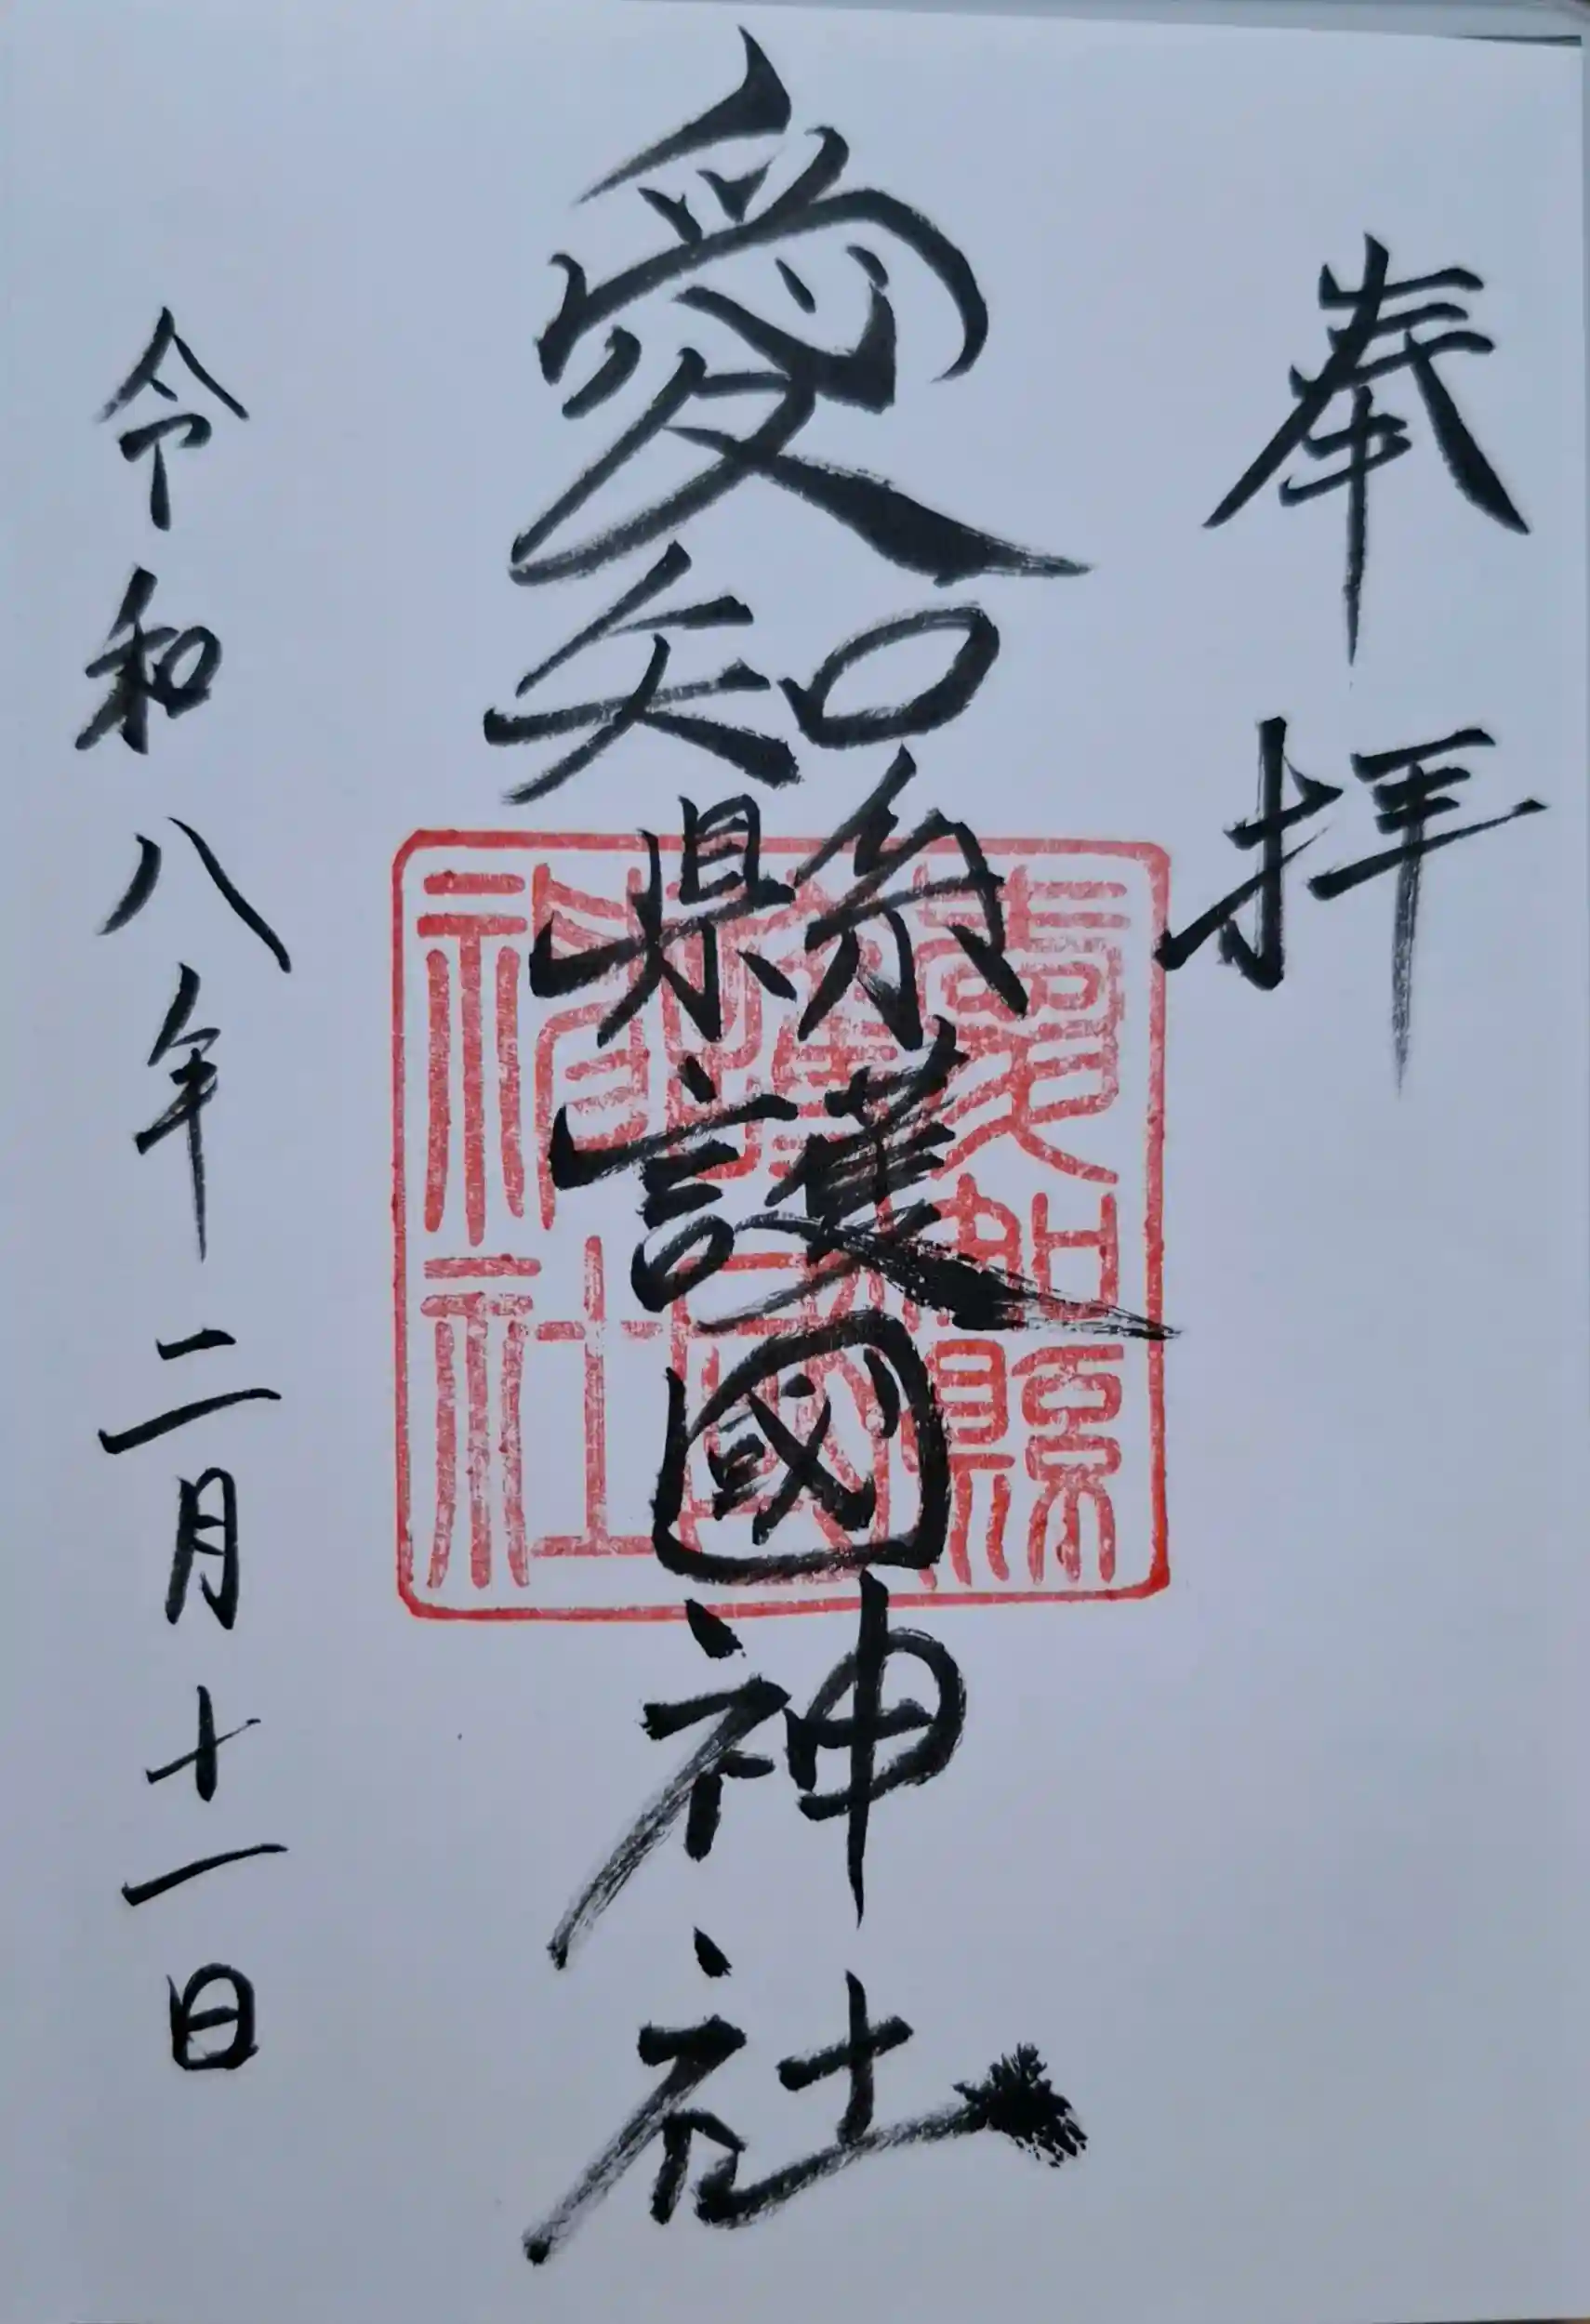 奉拝
愛知縣護國神社
愛知縣
護國
神社
令和八年二月十一日